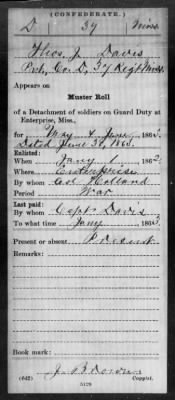 (CONFEDERATE.)
D 37 Miss.
Thos. J. Davis
Pvt., Co. D, 37 Regt Miss.
Appears on
Muster Roll
of a Detachment of soldiers on Guard Duty at
Enterprise, Miss.
for May & June, 1863.
Dated June 30, 1863.
Enlisted:
When Jany 1, 186
Where Enterprise
By whom Col Holland
Period War
Last paid:
By whom Capt. Davis
To what time Jany, 1863.
Present or absent Present
Remarks:
Book mark:
(642) J. B.
5129 Copyist.